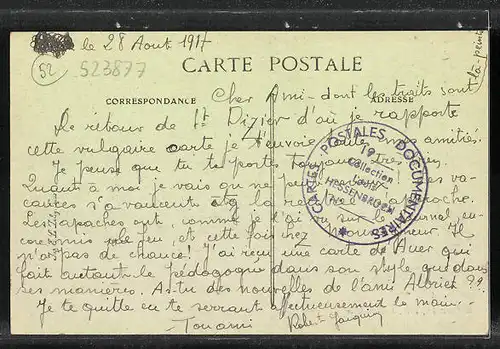 le 28 Aout 1917
52
523877
CARTE POSTALE
CORRESPONDANCE
ADRESSE
Cher Ami - dont les traits sont
là-peints
De retour de St Dizier d'où je rapporte
cette vulgaire carte je t'envoie toute mes amitiés.
Je pense que tu te portes toujours très
Quant à moi je vais on ne peut les va-
cances s'avancent et la rentrée approche.
Les apaches ont, comme je l'ai vu sur le journal, en-
core mis le feu, et cette fois chez Il
n'a pas de chance! J'ai reçu une carte de Auer qui
fait autant le pédagogue dans son style que dans
ses manières. As-tu des nouvelles de l'ami Albrier ??
Je te quitte en te serrant affectueusement la main.
Ton ami
Robert
CARTES POSTALES DOCUMENTAIRES
19
Collection
Louis
HESSENBRUCH